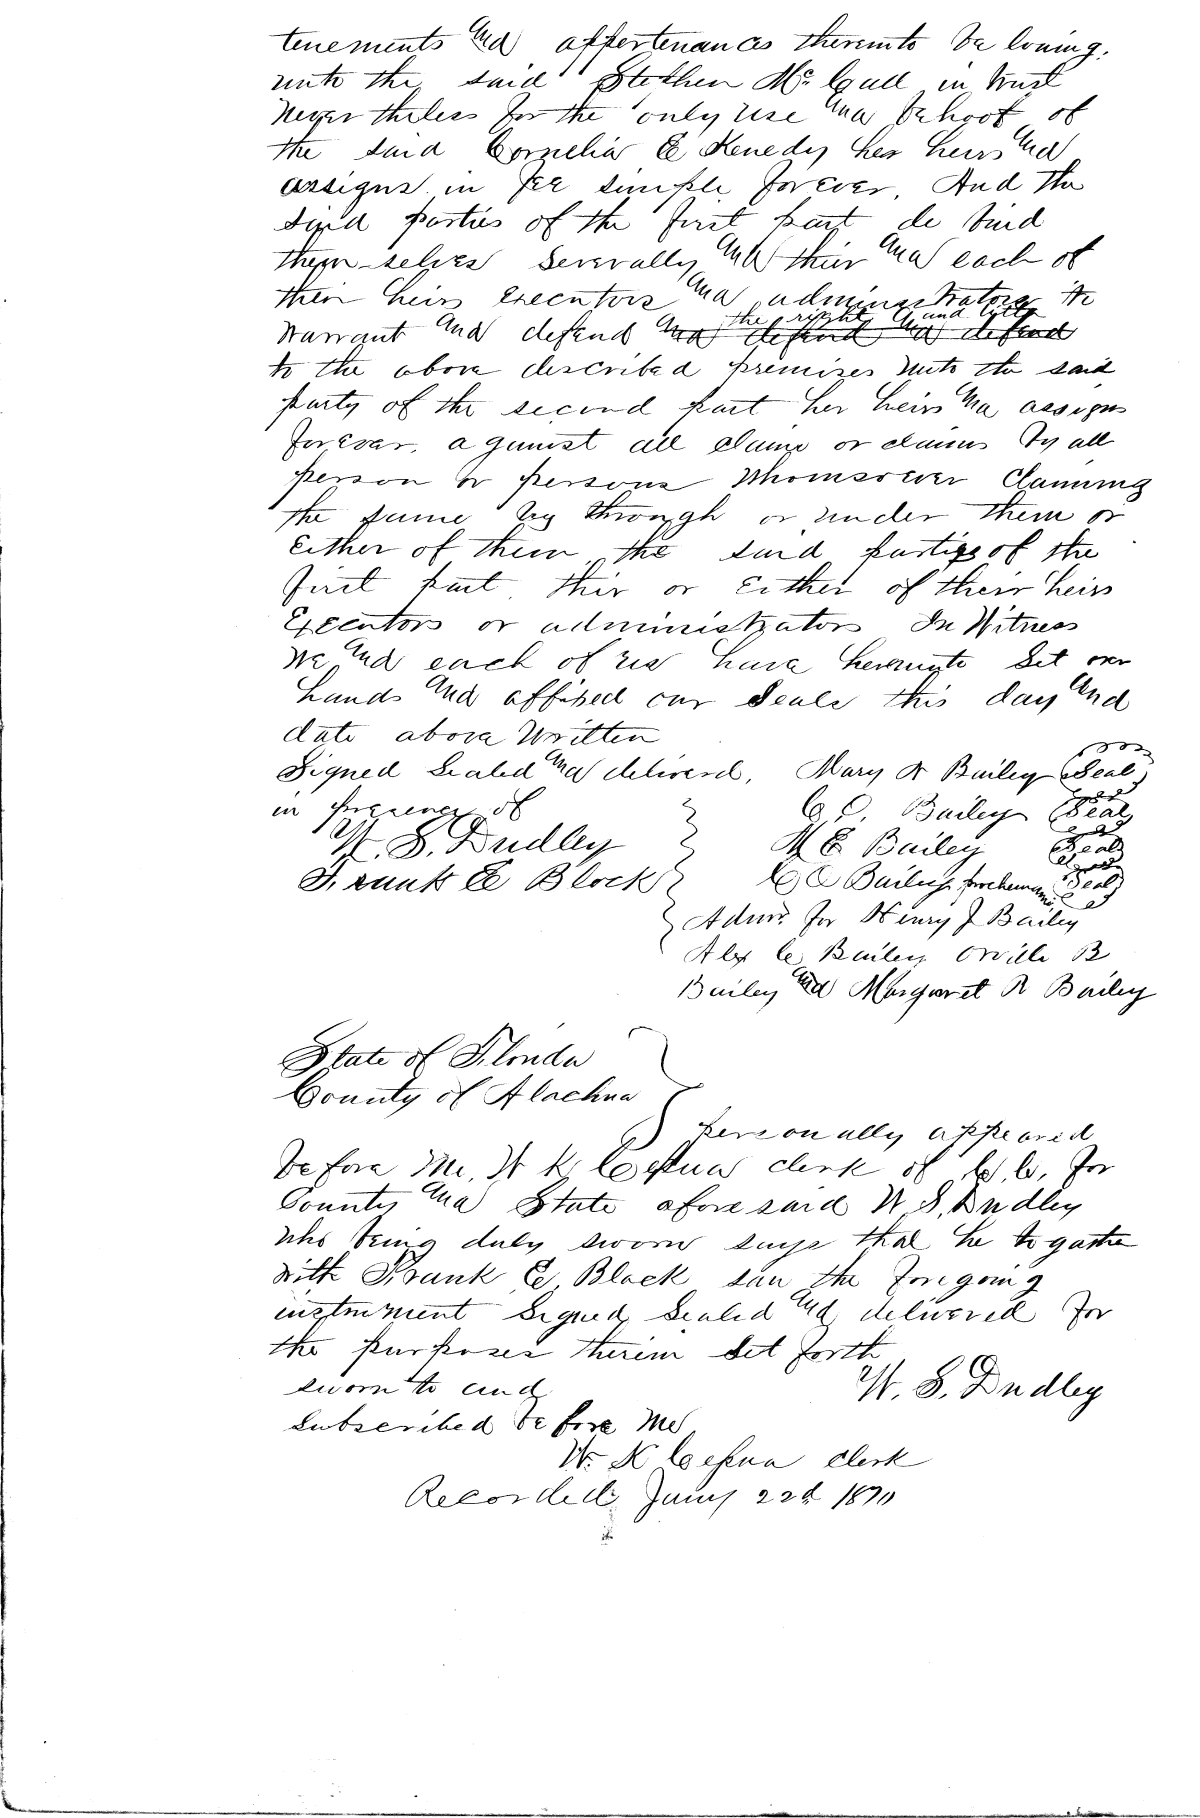 tenements and appertenances thereunto be loning.
unto the said Stephen Mc Call in trust
Never theless for the only use and behoof of
the said Cornelia E Kenedy her heirs and
assigns in fee simple forever. And the
said parties of the first part do bind
them-selves severally and their and each of
their heirs Executors and administrators to
Warrant and defend and the right and title defend and defend
to the above described premises unto the said
party of the second part her heirs and assigns
forever. a gainst all claim or claims by all
person or persons Whomsoever Claiming
the same by through or under them or
Either of them the said parties of the
first part thir or Either of their heirs
Executors or administrators In Witness
We and each of us have hereunto Set our
hands and affixed our Seals this day and
date above Written
Signed Sealed and deliverd, Mary A Bailey Seal
in presence of C, C. Bailey Seal
W. S. Dudley M E Bailey Seal
Frank E Block C C Bailey Seal
Admr. for Henry J Bailey
Alex C Bailey Orville B
Bailey and Margaret R Bailey
State of Florida
County of Alachua
Personally appeared
before Me, W K Cessna clerk of C, C, for
County and State afore said W. S. Dudley
who being duly sworn says that he to gather
With Frank E Block saw the foregoing
instrument Signed Sealed and delivered for
the purposes therein Set forth
sworn to and W. S. Dudley
Subscribed before Me
W. K Cessna clerk
Recorded, Jany 22d 1870